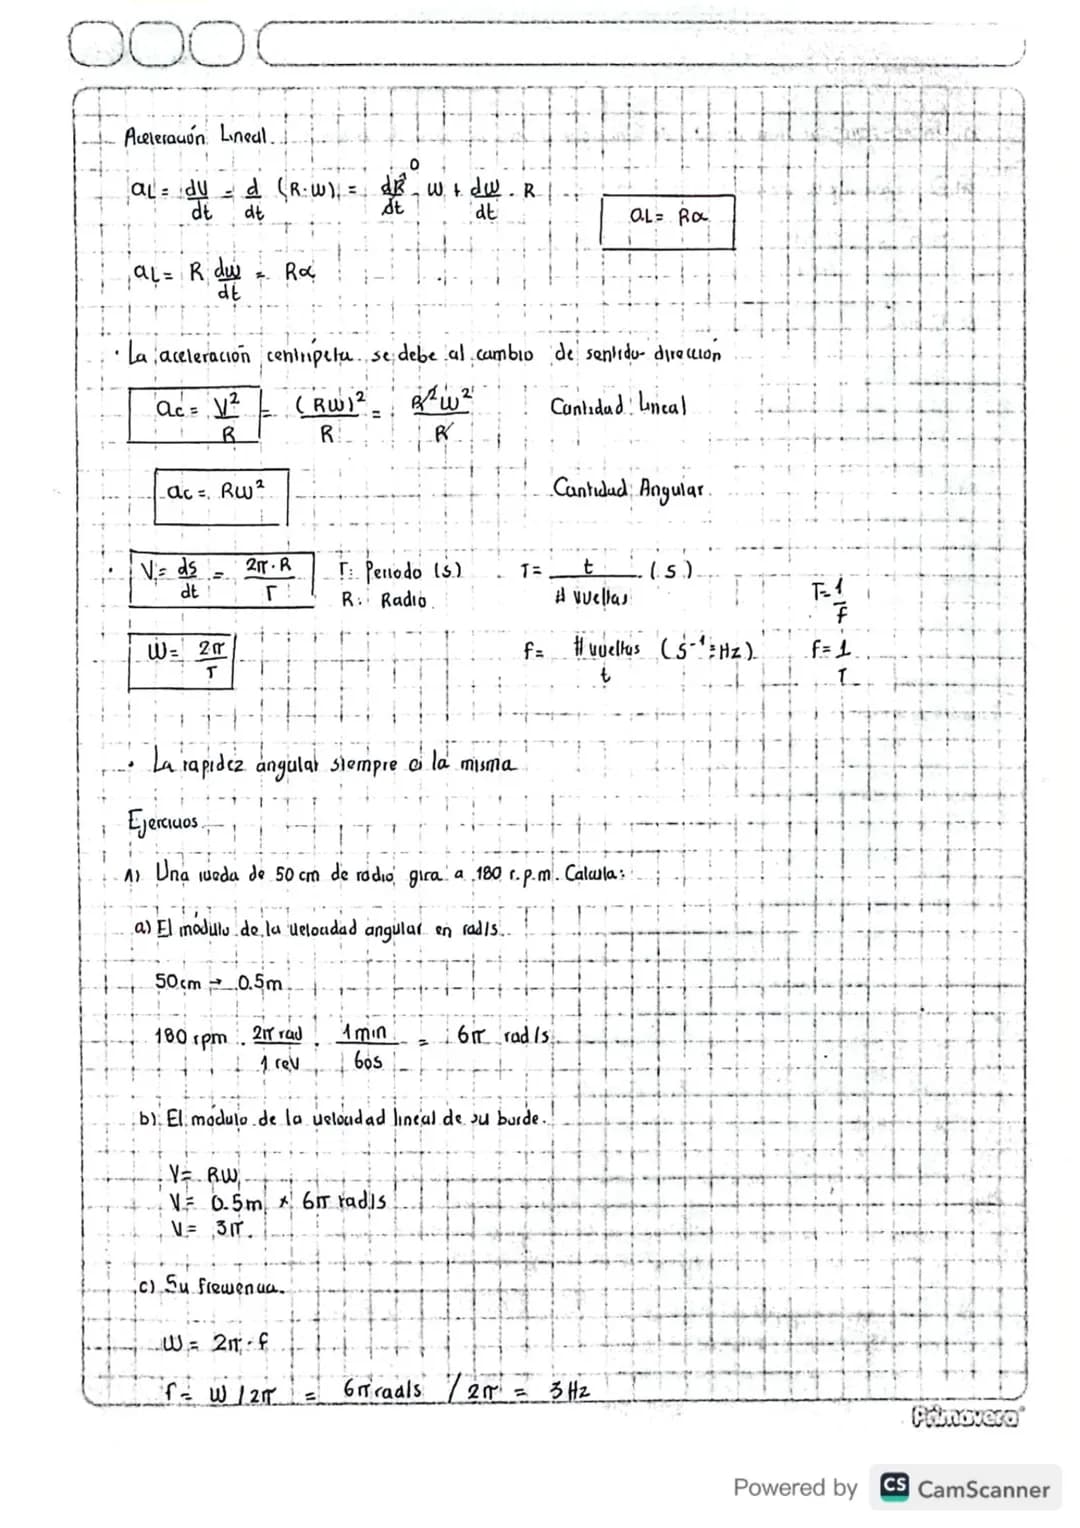 Aceleración Lineal.
aL = dv/dt = d/dt (R·w) = dR/dt⁰ · w + dw/dt · R
aL = Rα
aL = R dw/dt = Rα
· La aceleración centripeta se debe al cambio de sentido-dirección
ac = V²/R = (Rw)²/R = R²w²/R Cantidad Lineal
ac = Rw² Cantidad Angular.
· V = ds/dt = 2π·R/T T: Periodo (s) T = t/# vueltas (s)
R: Radio.
T = 1/f
w = 2π/T f = # vueltas/t (s⁻¹ = Hz) f = 1/T
· La rapidez angular siempre es la misma
Ejercicios
1) Una rueda de 50 cm de radio gira a 180 r.p.m. Calcula:
a) El módulo de la velocidad angular en rad/s.
50cm → 0.5m
180 rpm · 2π rad/1 rev · 1min/60s = 6π rad/s
b) El módulo de la velocidad lineal de su borde.
V = Rw
V = 0.5m × 6π rad/s
V = 3π.
c) Su frecuencia.
w = 2π·f
f = w/2π = 6π rad/s /2π = 3Hz
Primavera
Powered by CS CamScanner